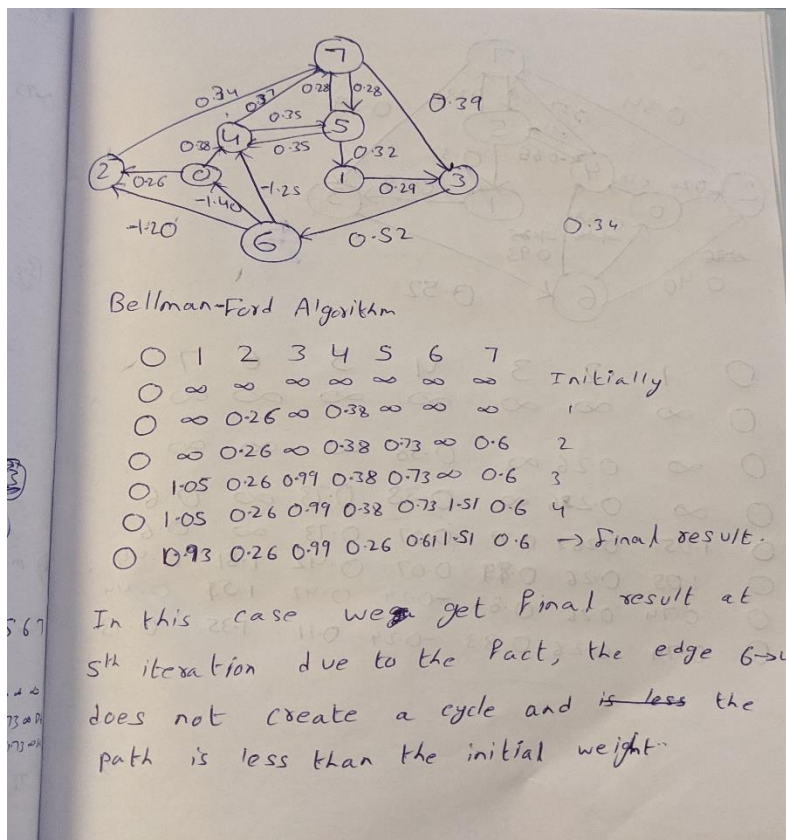 7
0.34
0.37
0.28
0.28
0.39
0.35
4
5
0.38
0.35
0.32
2
0.26
0
1
0.29
3
-1.25
-1.40
-1.20
6
0.52
0.34
Bellman-Ford Algorithm
0 1 2 3 4 5 6 7
0 ∞ ∞ ∞ ∞ ∞ ∞ ∞ Initially
0 ∞ 0.26 ∞ 0.38 ∞ ∞ ∞ 1
0 ∞ 0.26 ∞ 0.38 0.73 ∞ 0.6 2
0 1.05 0.26 0.99 0.38 0.73 ∞ 0.6 3
0 1.05 0.26 0.99 0.38 0.73 1.51 0.6 4
0 0.93 0.26 0.99 0.26 0.61 1.51 0.6 → final result.
In this case we get final result at
5th iteration due to the fact, the edge 6→4
does not create a cycle and is less the
path is less than the initial weight.
567